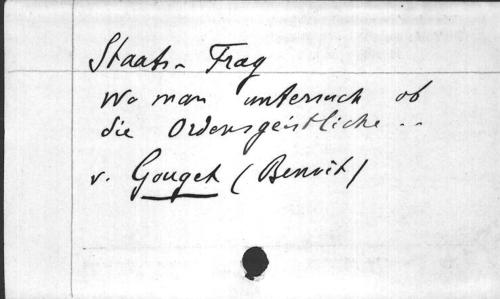 Staats- Frag
Wo man untersuch ob
die Ordensgeistliche ..
v. Gouget (Benoit)